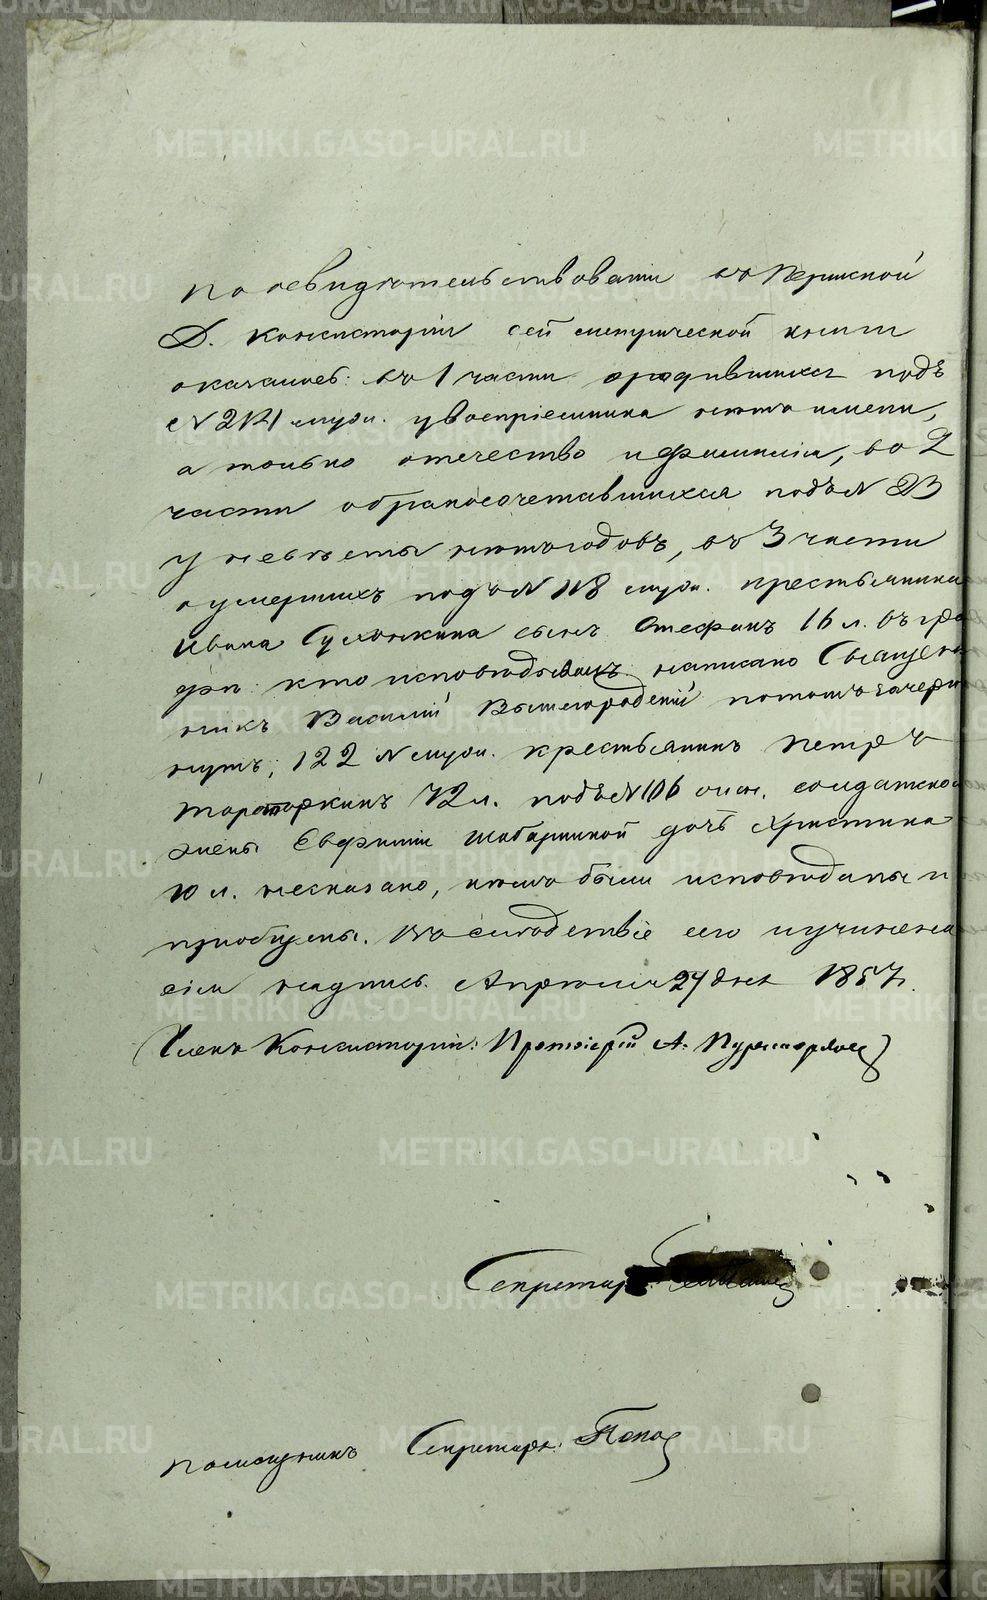 По освидѣтельствованіи въ Пермской
Д. Консисторіи сей метрической книги
оказалось: въ 1 части о родившихся подъ
№ муж. у воспріемника нѣтъ имени,
а только отечество и фамилія, во 2
части о бракосочетавшихся подъ № 23
у невѣсты нѣтъ годовъ, въ 3 части
о умершихъ подъ № 118 муж. крестьянина
Ивана сынъ Стефанъ 16 л. въ гра
фѣ: кто исповѣдывалъ написано Священ
никъ Василій потомъ зачерк
нутъ; 122 № муж. крестьянинъ Петръ
72 л. подъ № 106 жен. солдатской
жены Евфиміи дочь Христина
10 л. несказано, кѣмъ были исповѣданы и
пріобщены. Въ слѣдствіе сего и учинена
сія надпись. Апрѣля 27 дня 1857 г.
(Членъ Консисторіи: Протоіерей А.
Секретарь
Помощникъ Секретаря: Попов
METRIKI.GASO-URAL.RU